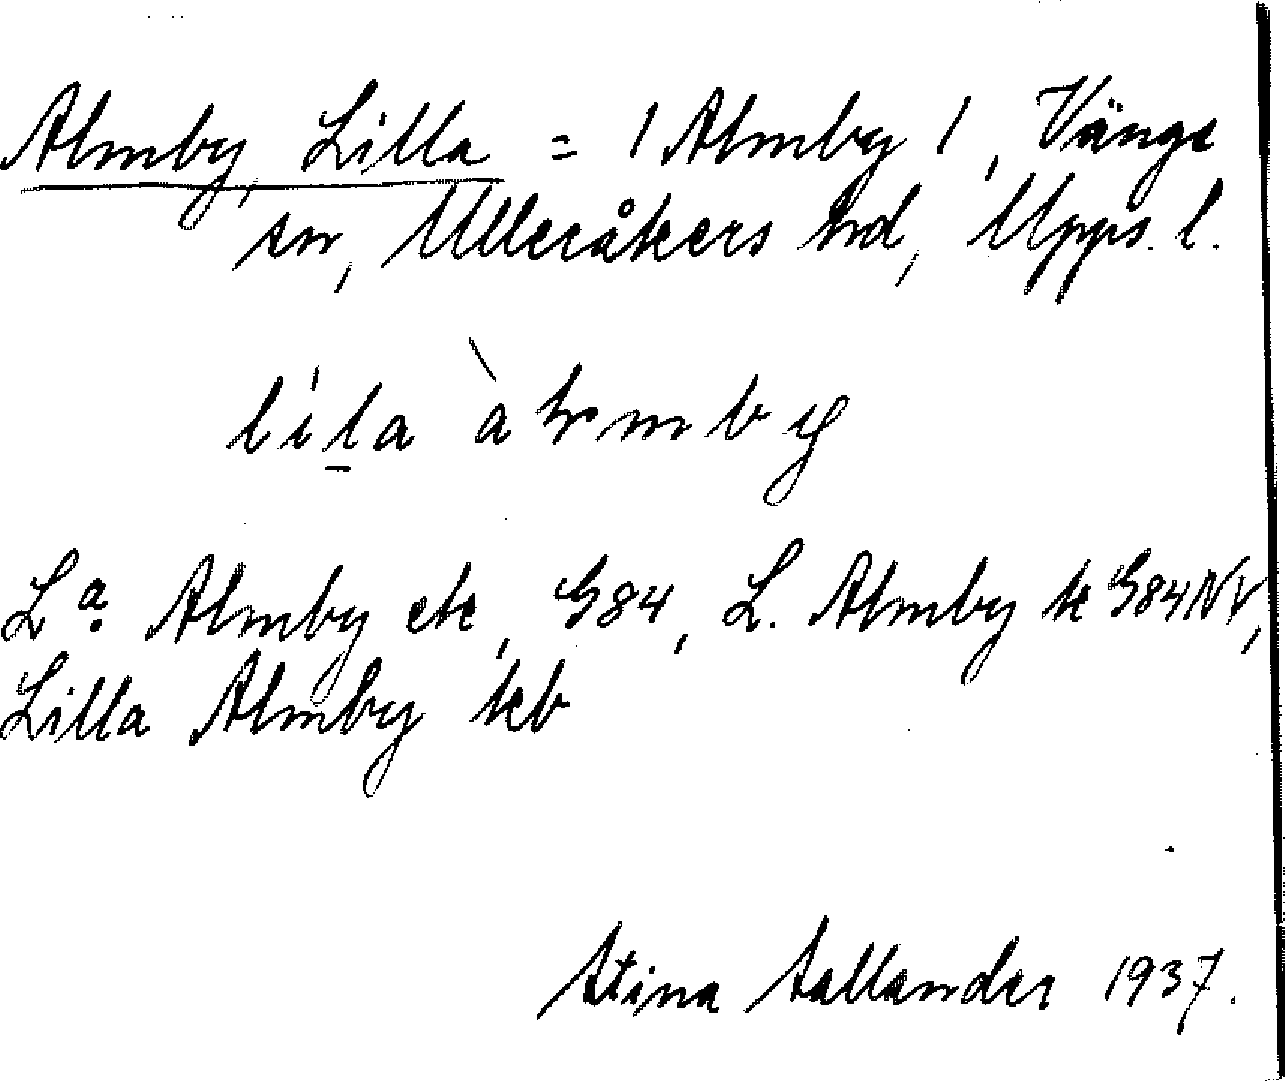 Almby, Lilla = / Almby /, Vänge
sn, Ulleråkers hd, Upps. l.
La. Almby ek, G84, L. Almby k G84NV,
Lilla Almby kb
Stina Sallander 1937.